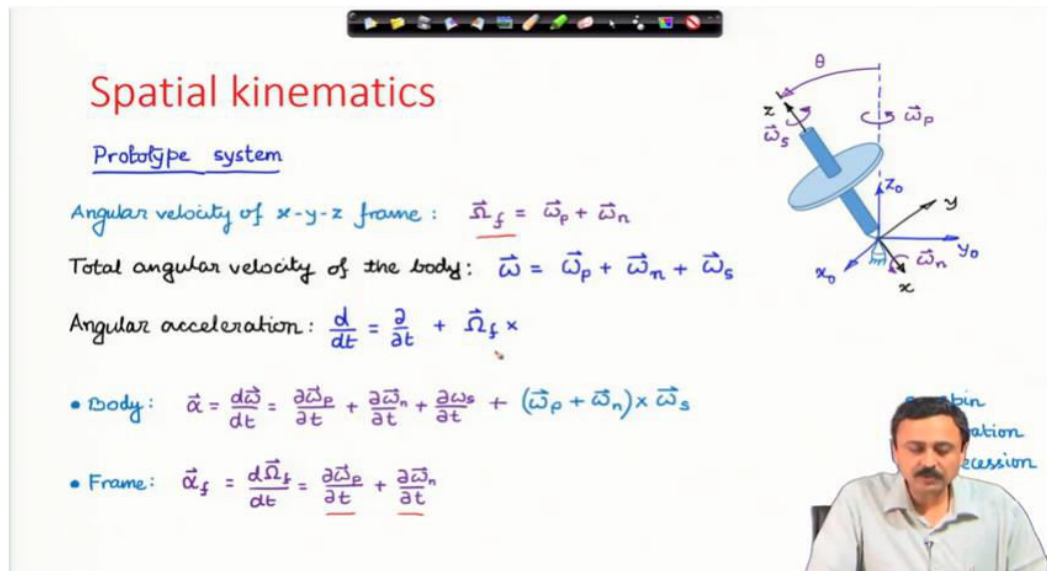 Spatial kinematics
Prototype system
Angular velocity of x-y-z frame : Ω⃗_f = ω⃗_p + ω⃗_n
Total angular velocity of the body: ω⃗ = ω⃗_p + ω⃗_n + ω⃗_s
Angular acceleration: d/dt = ∂/∂t + Ω⃗_f ×
• Body: α⃗ = dω⃗/dt = ∂ω⃗_p/∂t + ∂ω⃗_n/∂t + ∂ω_s/∂t + (ω⃗_p + ω⃗_n) × ω⃗_s
• Frame: α⃗_f = dΩ⃗_f/dt = ∂ω⃗_p/∂t + ∂ω⃗_n/∂t
θ
z
ω⃗_s
ω⃗_p
z₀
y
y₀
x₀
ω⃗_n
x
pin
ation
ecession